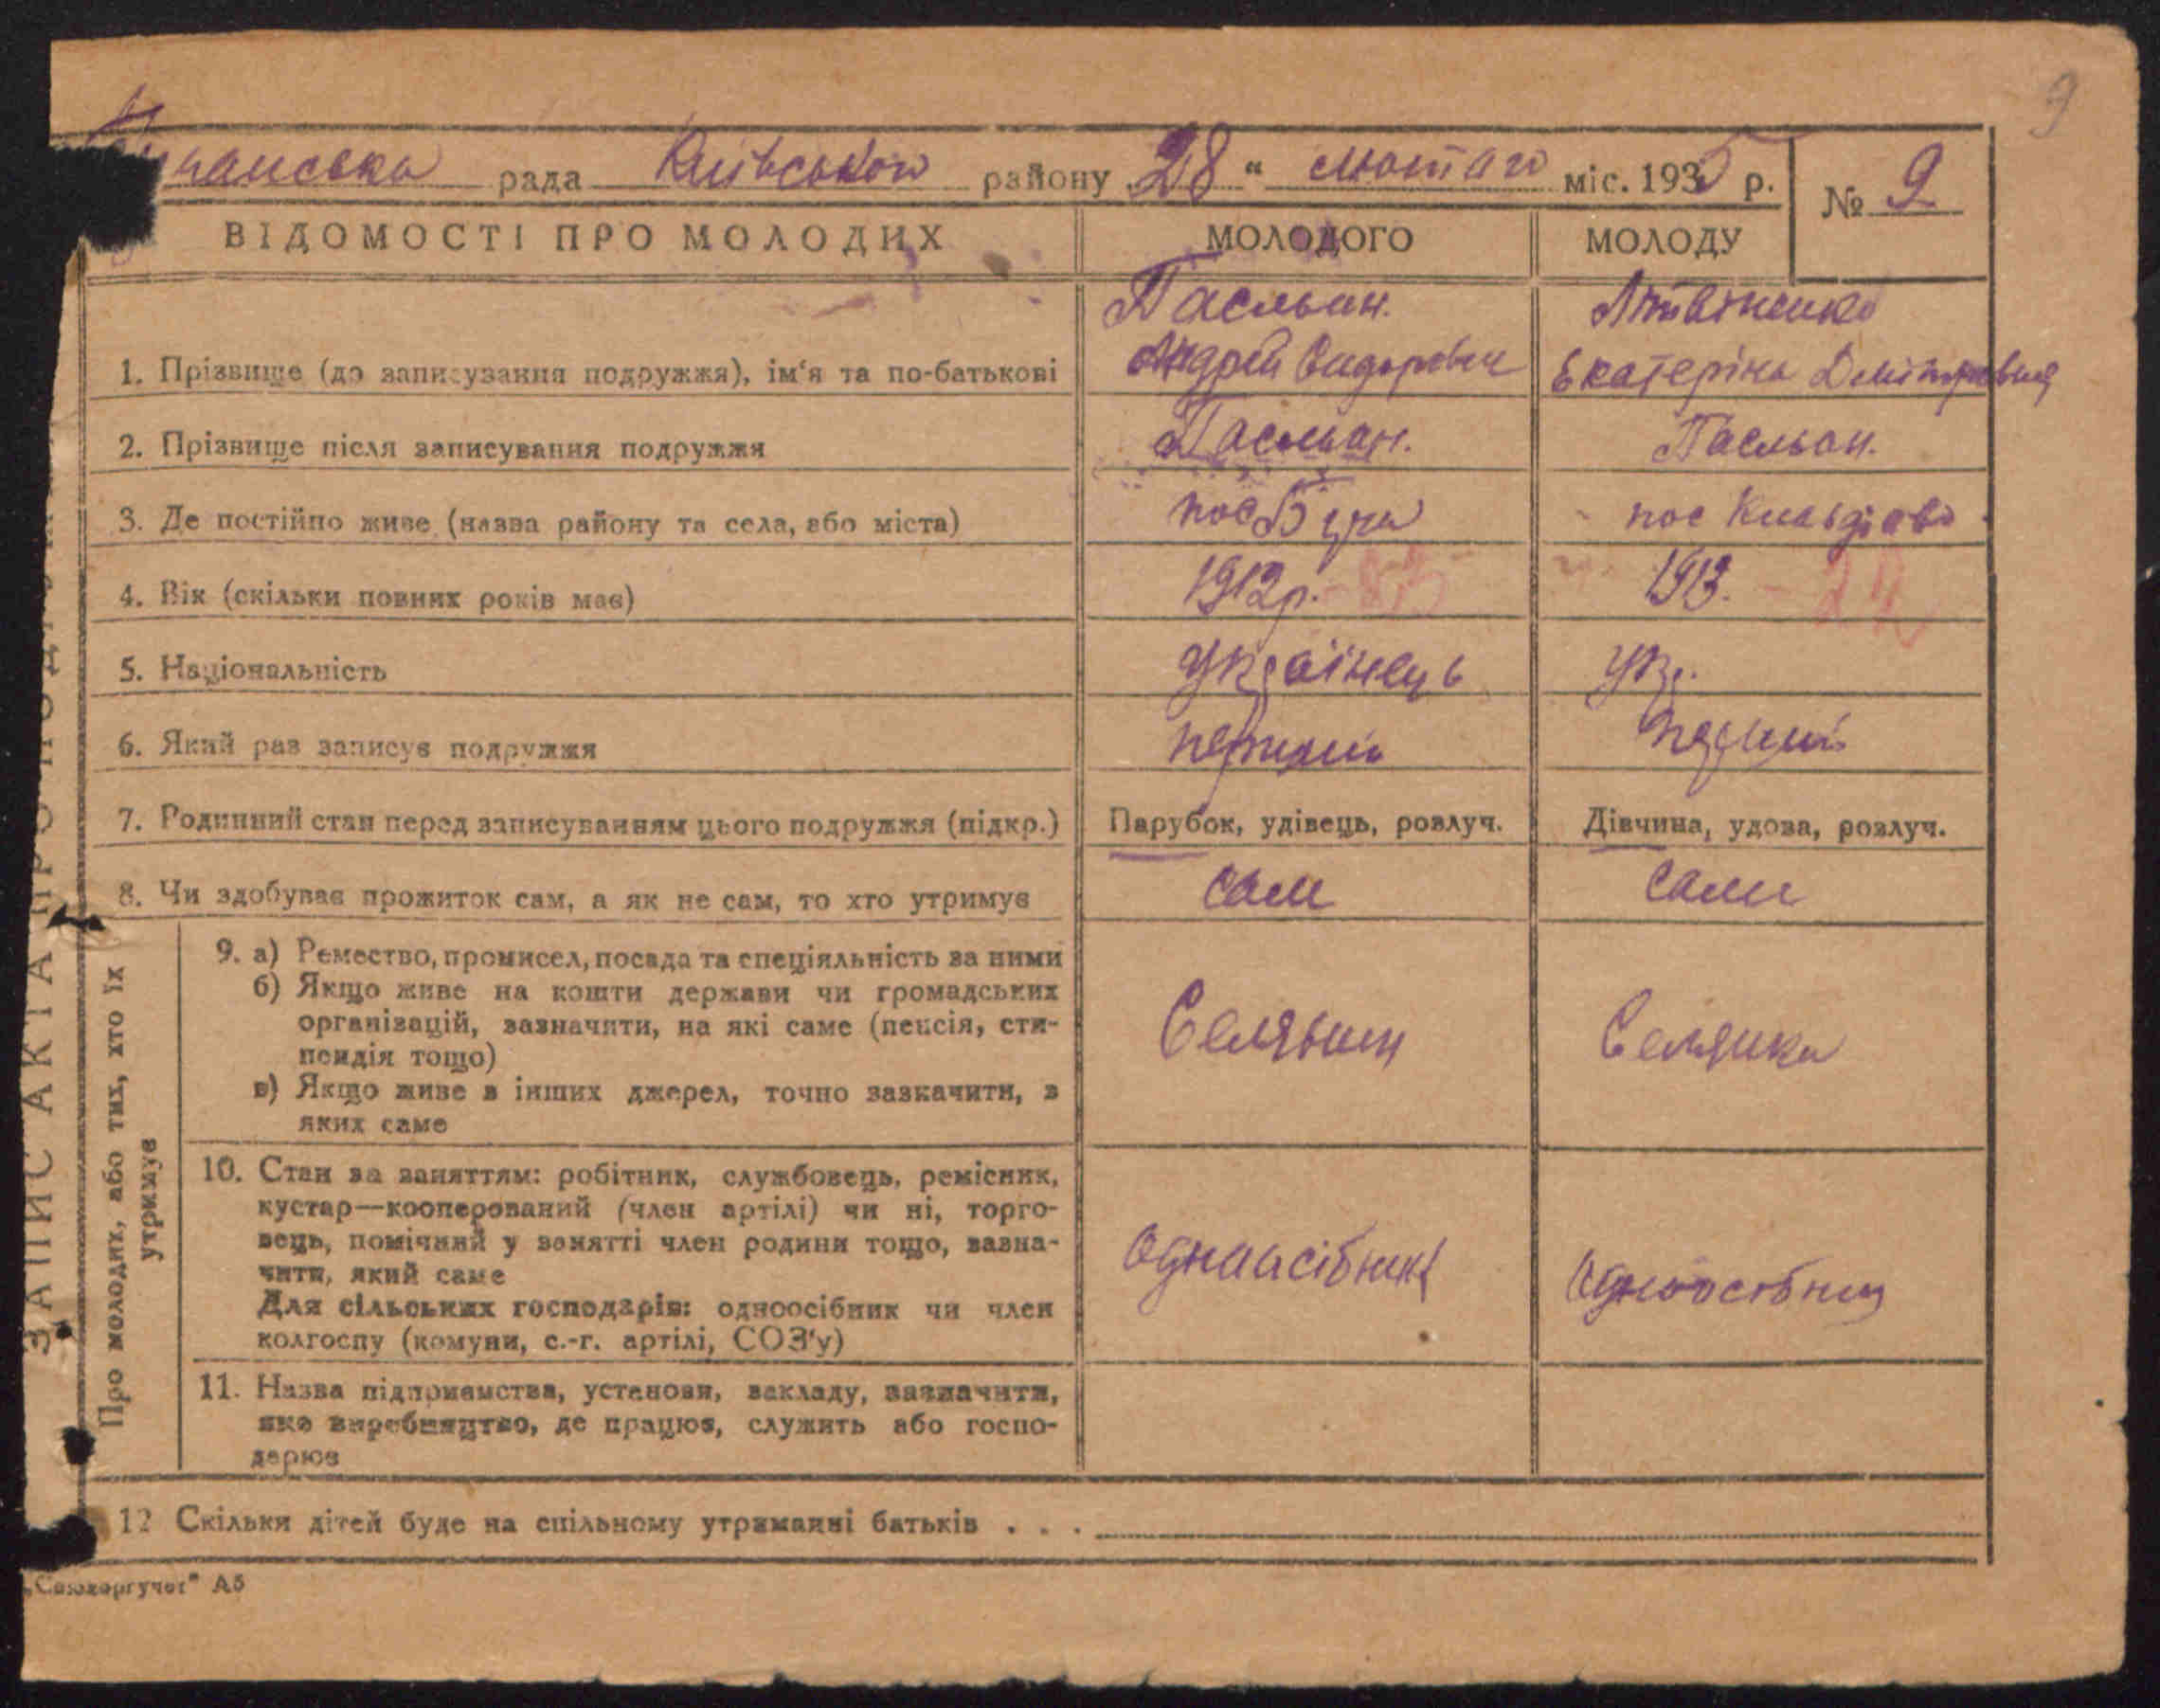 9
рада Київської району „28“ лютого міс. 1935 р.
№ 9
ВІДОМОСТІ ПРО МОЛОДИХ МОЛОДОГО МОЛОДУ
1. Прізвище (до записування подружжя), ім'я та по-батькові Пасльон. Андрій Сидорович Литвіненко Екатеріна Дмітровна
2. Прізвище після записування подружжя Пасльон. Пасльон.
3. Де постійно живе (назва району та села, або міста) пос Буча пос
4. Вік (скільки повних років має) 1912р. - 23 1913. - 22
5. Національність Українець Укр.
6. Який раз записує подружжя перший перший
7. Родинний стан перед записуванням цього подружжя (підкр.) Парубок, удівець, розлуч. Дівчина, удова, розлуч.
8. Чи здобуває прожиток сам, а як не сам, то хто утримує сам сама
ЗАПИС АКТА ПРО
Про молодих, або тих, хто їх утримує
9. а) Ремество, промисел, посада та спеціяльність за ними
б) Якщо живе на кошти держави чи громадських
організацій, зазначити, на які саме (пенсія, сти-
пендія тощо)
в) Якщо живе з інших джерел, точно зазначити, з
яких саме
Селянин Селянка
10. Стан за заняттям: робітник, службовець, ремісник,
кустар—кооперований (член артілі) чи ні, торго-
вець, помічний у занятті член родини тощо, зазна-
чити, який саме
Для сільських господарів: одноосібник чи член
колгоспу (комуни, с.-г. артілі, СОЗ'у)
Однаасібник Одноосібниц
11. Назва підприємства, установи, закладу, зазначити,
яке виробництво, де працює, служить або госпо-
дарює
12 Скільки дітей буде на спільному утриманні батьків . . .
„Союзоргучет" А5